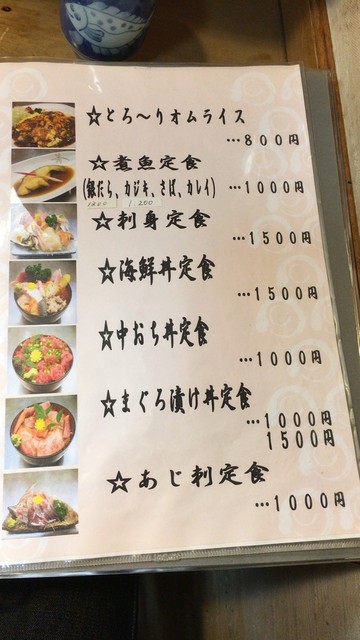 ☆とろ〜りオムライス
…800円
☆煮魚定食
(銀だら、カジキ、さば、カレイ) …1000円
1200 1,200
☆刺身定食
…1500円
☆海鮮丼定食
…1500円
☆中おち丼定食
…1000円
☆まぐろ漬け丼定食
…1000円
1500円
☆あじ刺定食
…1000円